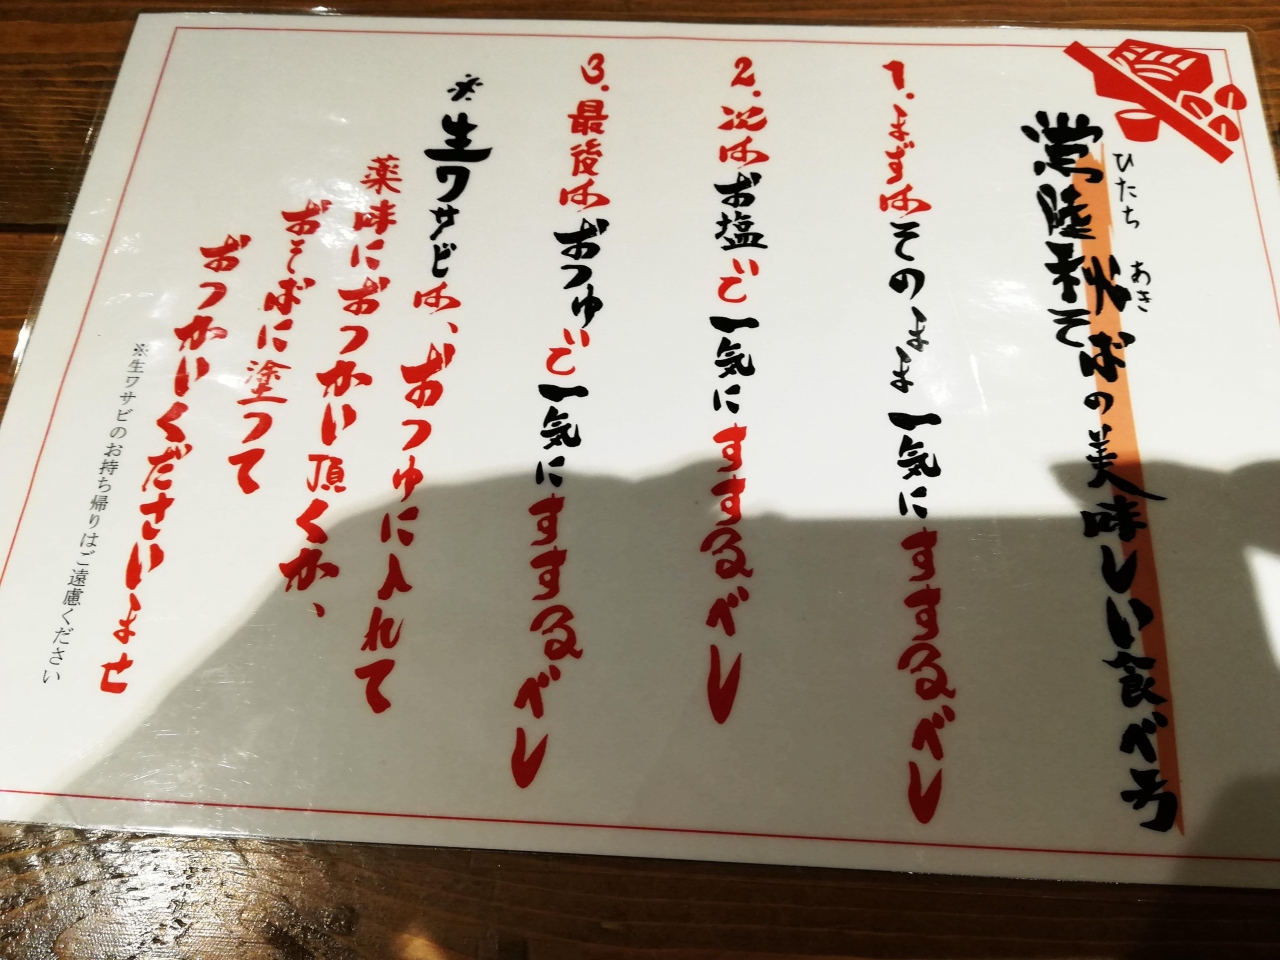 常陸秋そばの美味しい食べ方
ひたち あき
1. まずはそのまま一気にすするべし
2. 次はお塩で一気にすするべし
3. 最後はおつゆで一気にすするべし
※生ワサビは、おつゆに入れて
薬味におつかい頂くか、
おそばに塗って
おつかいくださいませ
※生ワサビのお持ち帰りはご遠慮ください